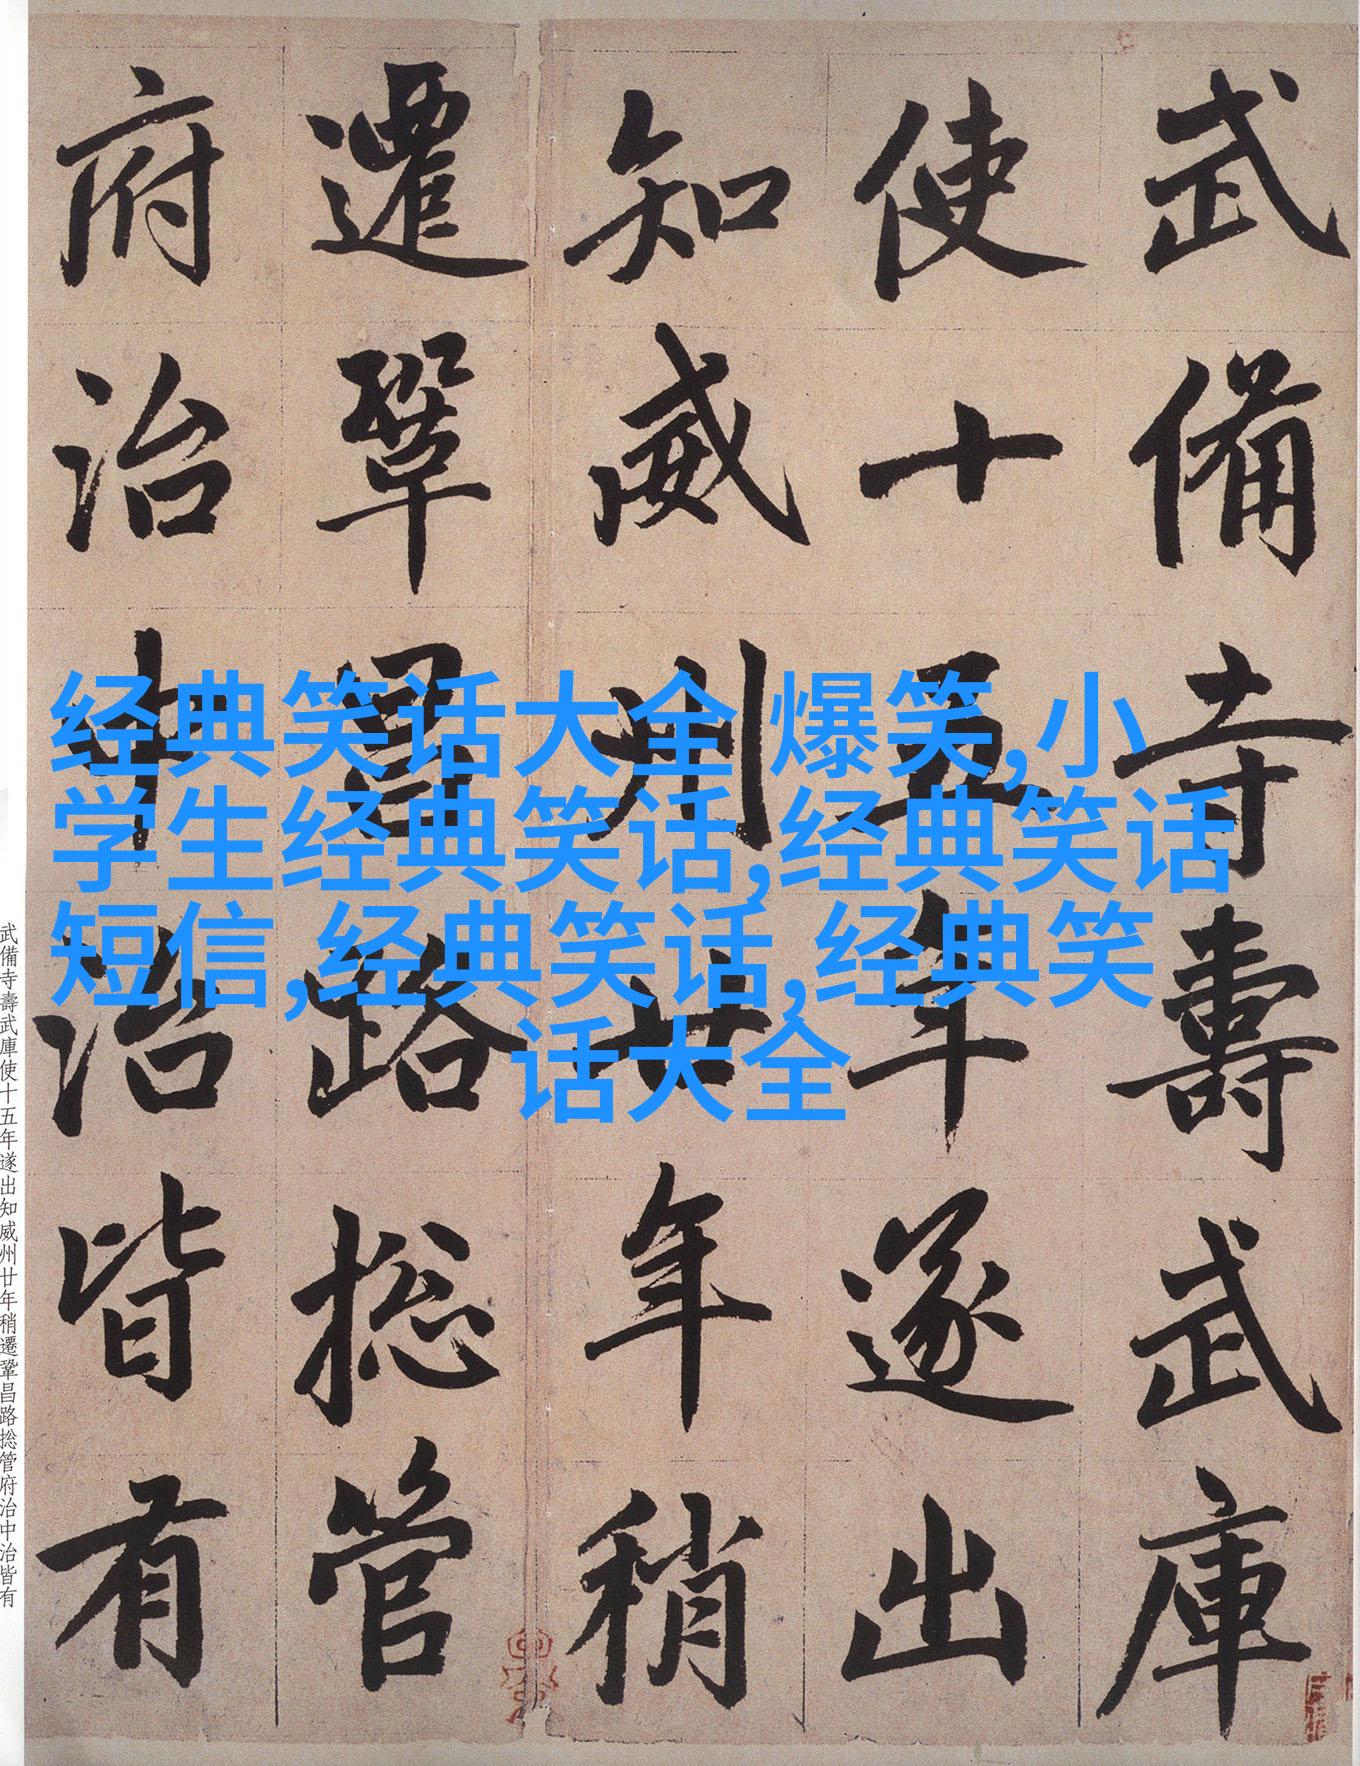 武備寺壽武庫
使十五年遂出
知威州廿年稍
遷鞏昌路捴管
府治中治皆有
经典笑话大全 爆笑,小
学生经典笑话,经典笑话
短信,经典笑话,经典笑
话大全
武備寺壽武庫使十五年遂出知威州廿年稍遷鞏昌路捴管府治中治皆有